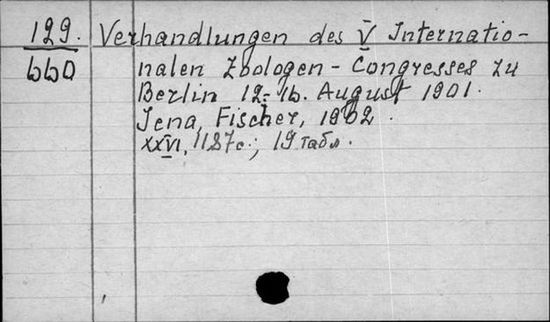 129. Verhandlungen des V Internatio-
660 nalen Zoologen-Congresses zu
Berlin 12-16. August 1901.
Jena, Fischer, 1902.
XXVI, 1187 с.; 19 табл.